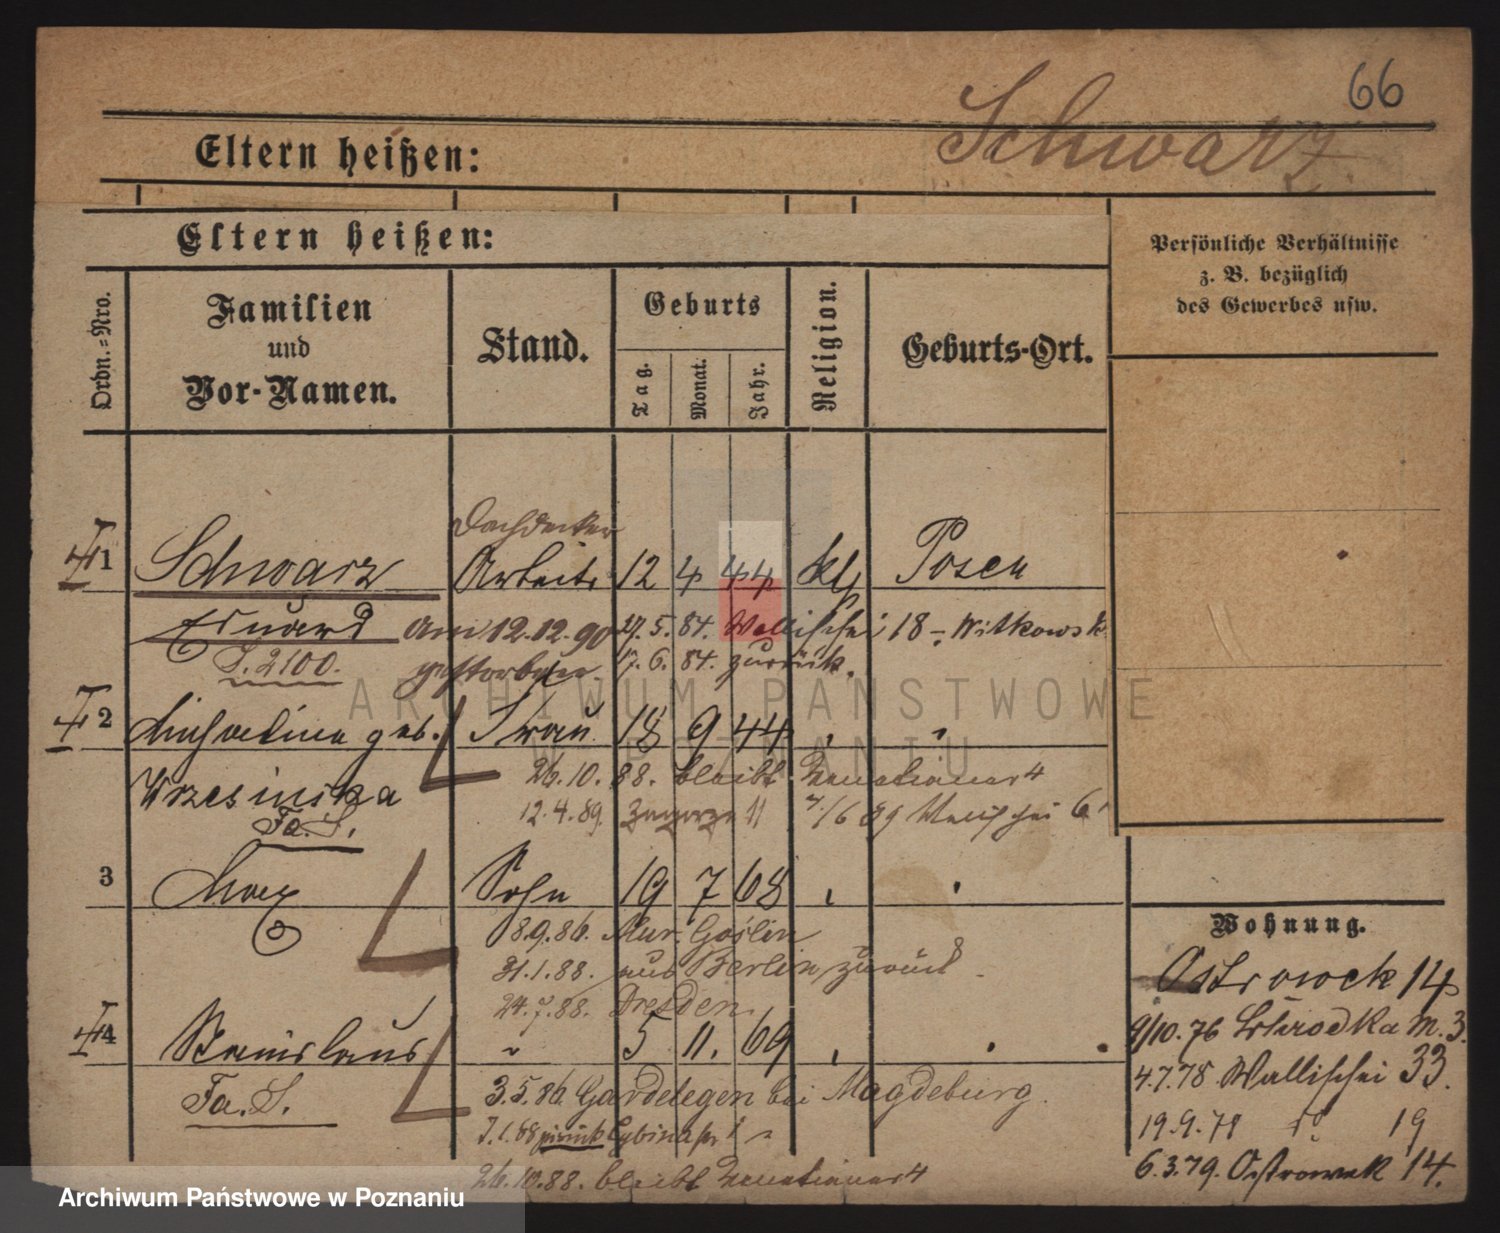 66
Schwarz
Eltern heißen:
Eltern heißen:
Persönliche Verhältnisse
z. B. bezüglich
des Gewerbes usw.
Ordn.=Nro.
Familien
und
Vor-Namen.
Stand.
Geburts
Tag.
Monat.
Jahr.
Religion.
Geburts-Ort.
Dachdecker
1 Schwarz Arbeite 12 4 44 kth Posen
Eduard am 12.12.90 27.5.84. Wallischei 18 – Witkowsk
J. 2100. gestorben. 17.6.84. zurück.
2 Michalina geb. Frau 18 9 44
Wrzesinska 26.10.88. bleibt 4
Fa. S. 12.4.89. Zagorze 11 7/6 89 6
3 Max Sohn 19 7 68
8.9.86. Mur. Goslin
31.1.88. aus Berlin zurück
24.7.88. Dresden.
4 Stanislaus 5 11. 69
Fa. S. 3.5.86. Gardelegen bei Magdeburg.
zurück
26.10.88. bleibt 4
Wohnung.
Ostrowek 14
9/10.76 Schrodka M. 3.
4.7.78 Wallischei 33.
19.9.78 do 19
6.3.79. Ostrowek 14.
ARCHIWUM PAŃSTWOWE
W POZNANIU
Archiwum Państwowe w Poznaniu